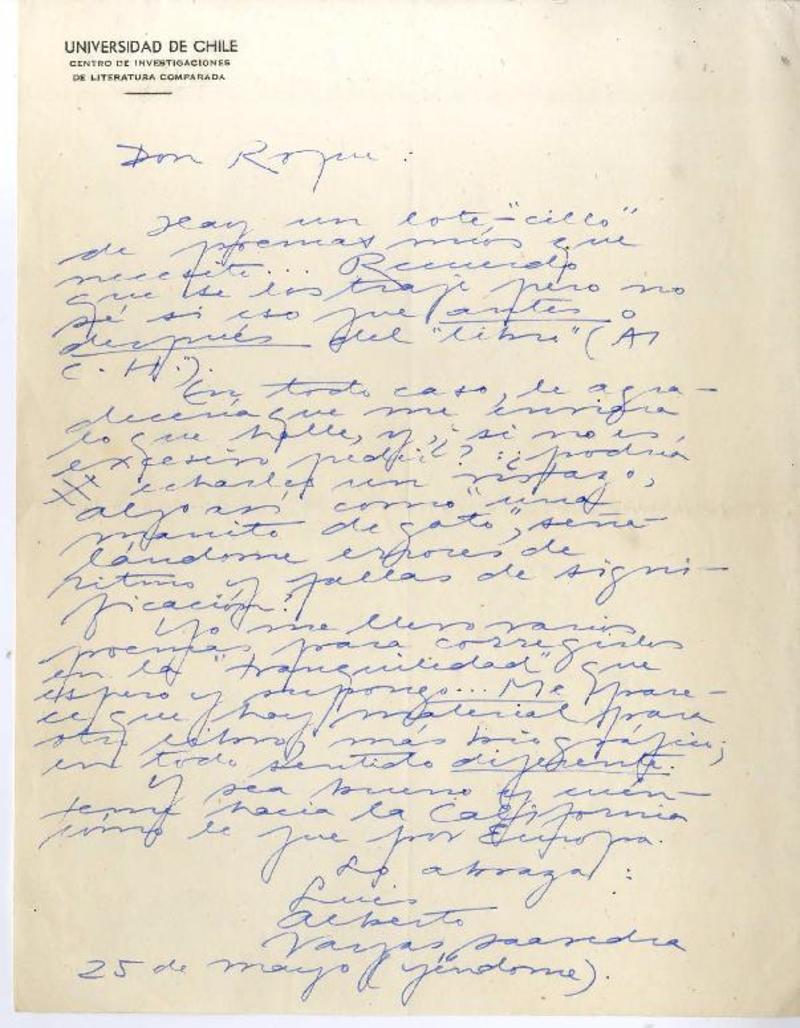 UNIVERSIDAD DE CHILE
CENTRO DE INVESTIGACIONES
DE LITERATURA COMPARADA
Don Roque:
Hay un lote-"cillo"
de poemas míos que
necesito... Recuerdo
que se los traje pero no
sé si eso fue antes o
después del "libro" (
C. H.").
En todo caso, le agra-
decería que me enviara
lo que halle, y, ¿si no es
excesivo pedir? : ¿podría
echarles un vistazo,
algo así como "una
manito de gato", seña-
lándome errores de
ritmo y fallas de signi-
ficación?
Yo me llevo varios
poemas para corregirlos
en la "tranquilidad" que
espero y supongo... Me pare-
ce que hay material para
otro libro, más biográfico;
en todo sentido diferente.
Y sea bueno y cuén-
teme hacia la California
cómo le fue por Europa.
Lo abraza:
Luis
Alberto
Vargas Saavedra
25 de mayo (yéndome).